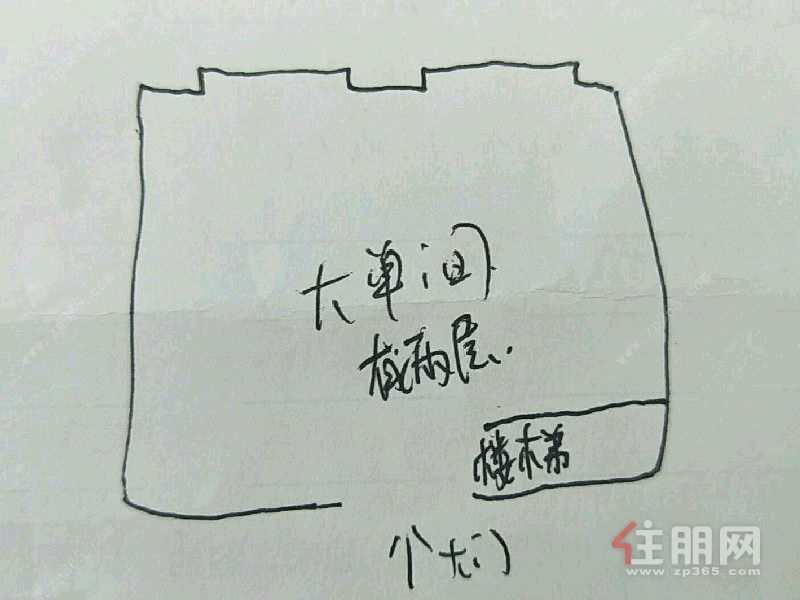 大单间
截两层.
楼梯
个大门
住朋网
www.zp365.com